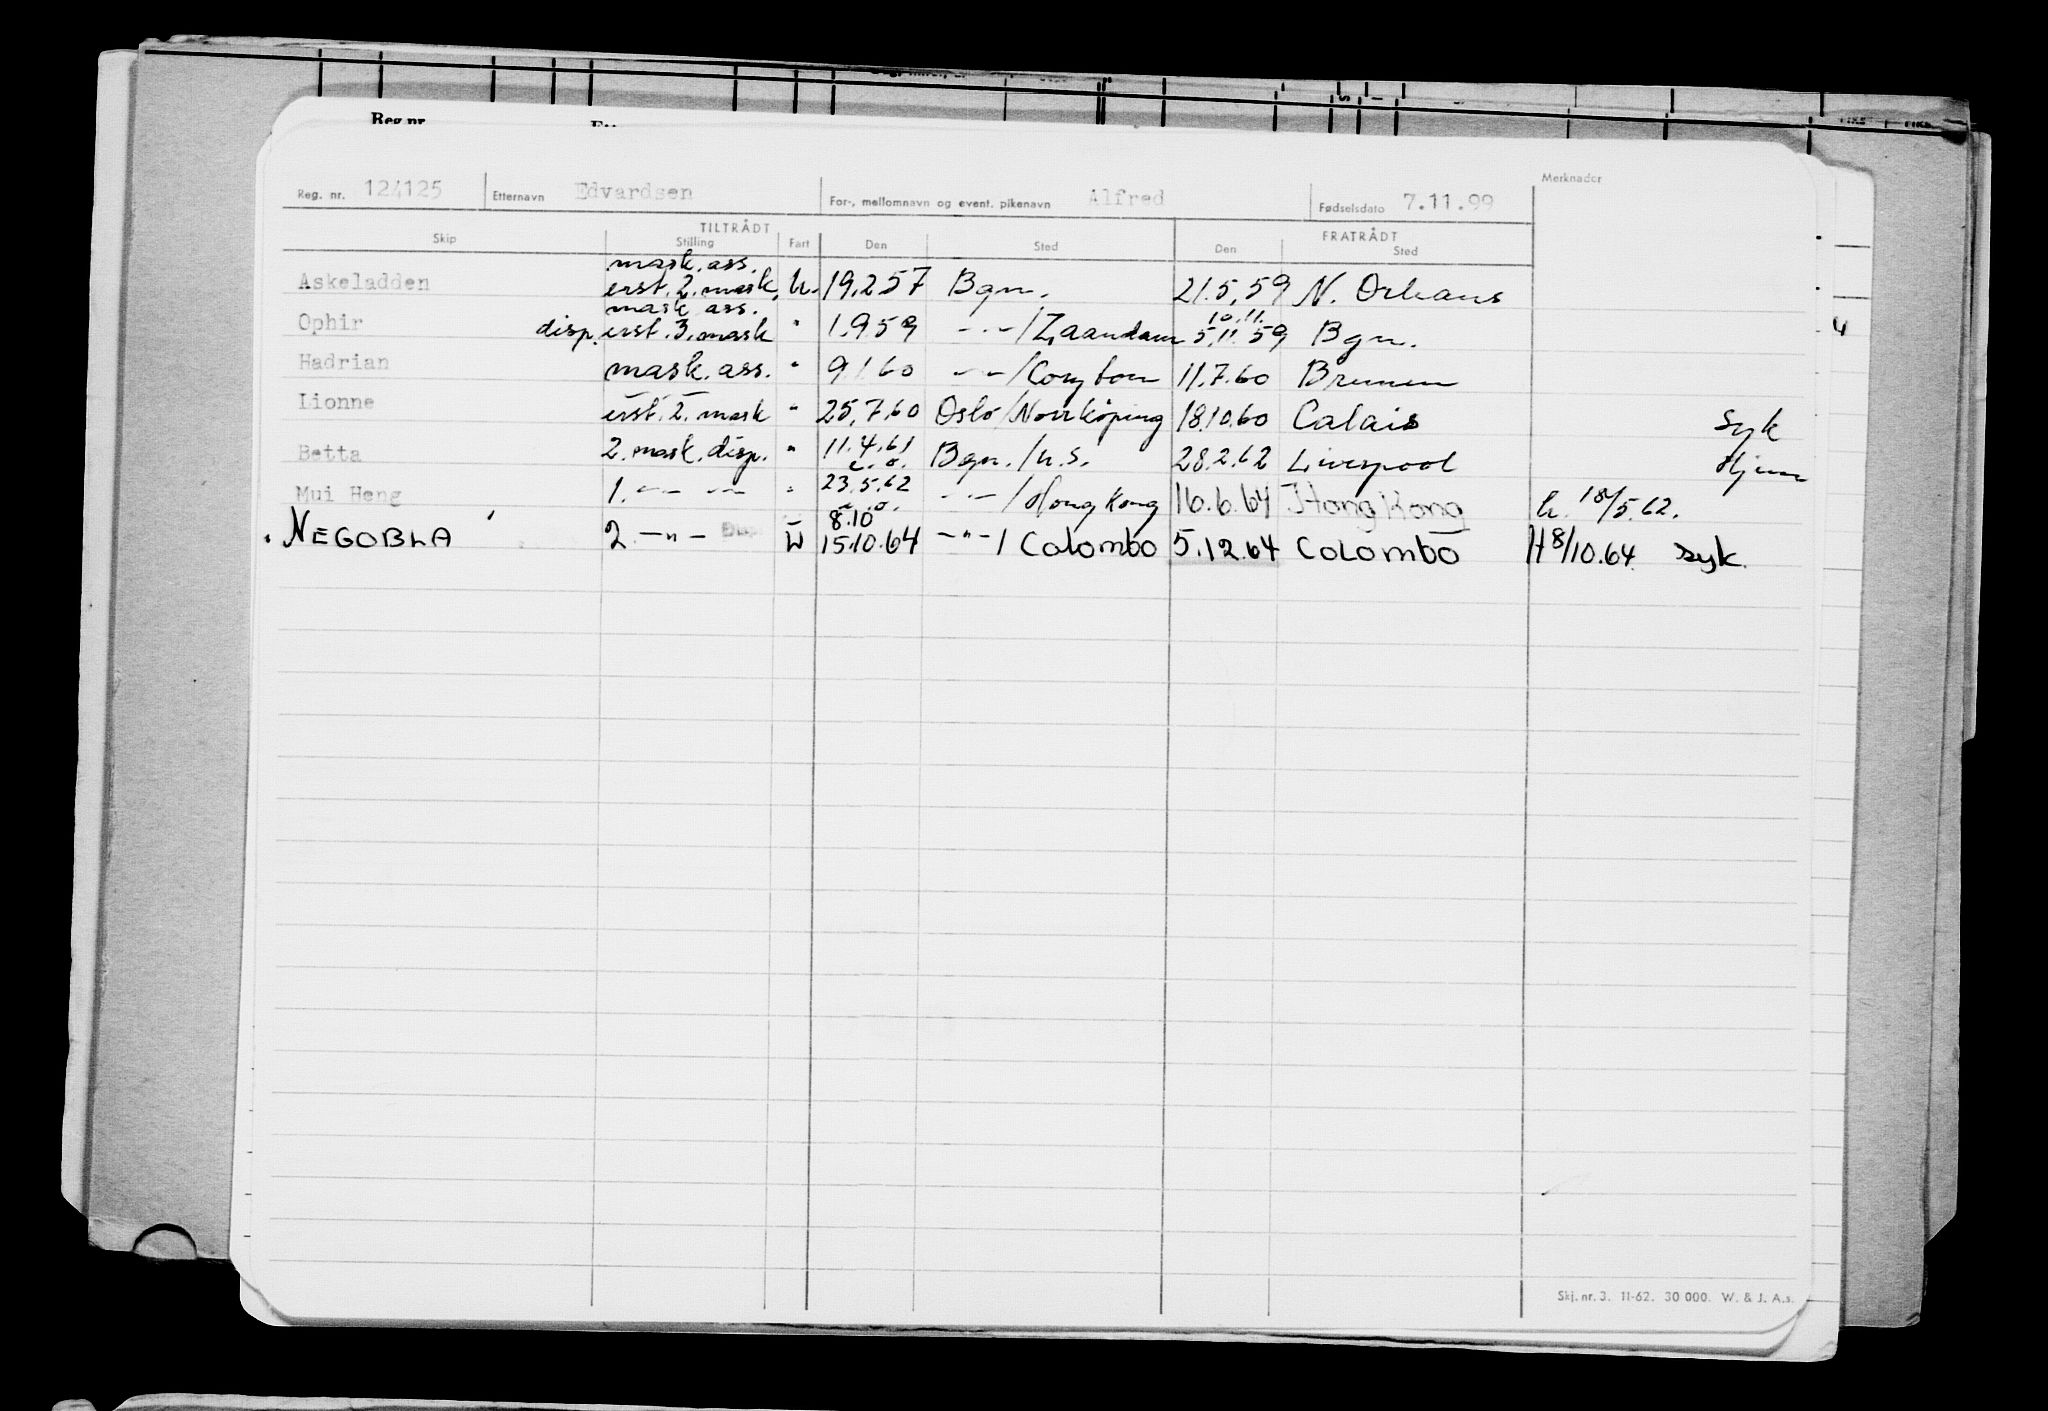 Reg.nr.
Reg. nr. 124125 Etternavn Edvardsen For-, mellomnavn og event. pikenavn Alfred Fødselsdato 7.11.99 Merknader
TILTRÅDT FRATRÅDT
Skip Stilling Fart Den Sted Den Sted
mask. ass.
Askeladden erst. 2. mask. u. 19.2.57 Bgn. 21.5.59 N. Orleans
mask. ass. 10.11.
Ophir disp. erst. 3. mask " 1.9.59 -"-/Zaandam 5.11.59 Bgn.
Hadrian mask. ass. " 9.1.60 -"-/ 11.7.60 Bremen
Lionne erst. 2. mask " 25.7.60 Oslo/Norrköping 18.10.60 Calais Syk
Betta 2. mask. disp. " 11.4.61 Bgn./u.s. 28.2.62 Liverpool Hjem
Mui Heng 1. -"- -"- " 23.5.62 -"-/Hong Kong 16.6.64 Hong Kong h. 18/5.62.
8.10
NEGOBLA 2. -"- Disp W 15.10.64 -"-/ Colombo 5.12.64 Colombo H 8/10.64. syk.
Skj. nr. 3. 11-62. 30 000. W. & J. A.s.